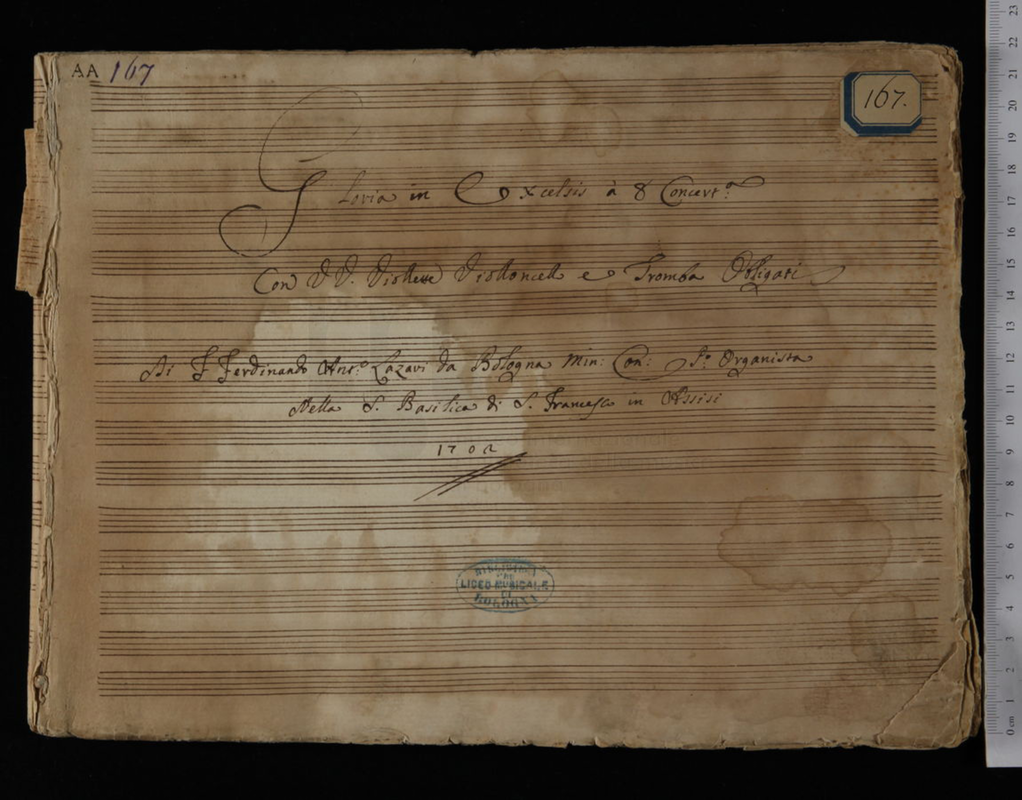 AA 167
167.
Gloria in Excelsis à 8 Concert.ta
Con V V. Violette Violoncello e Tromba Obligati
Di F Ferdinando Ant.o Lazari da Bologna Min: Con: P.o Organista
Nella S. Basilica di S. Francesco in Assisi
1702
BIBLIOTECA
DEL
LICEO MUSICALE
DI
BOLOGNA
23
22
21
20
19
18
17
16
15
14
13
12
11
10
9
8
7
6
5
4
3
2
1
0 cm